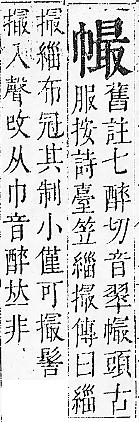 舊註七醉切音翠頭古
服按詩臺笠緇撮傳曰緇
撮緇布冠其制小僅可撮髻
撮入聲改从巾音醉𠀤非